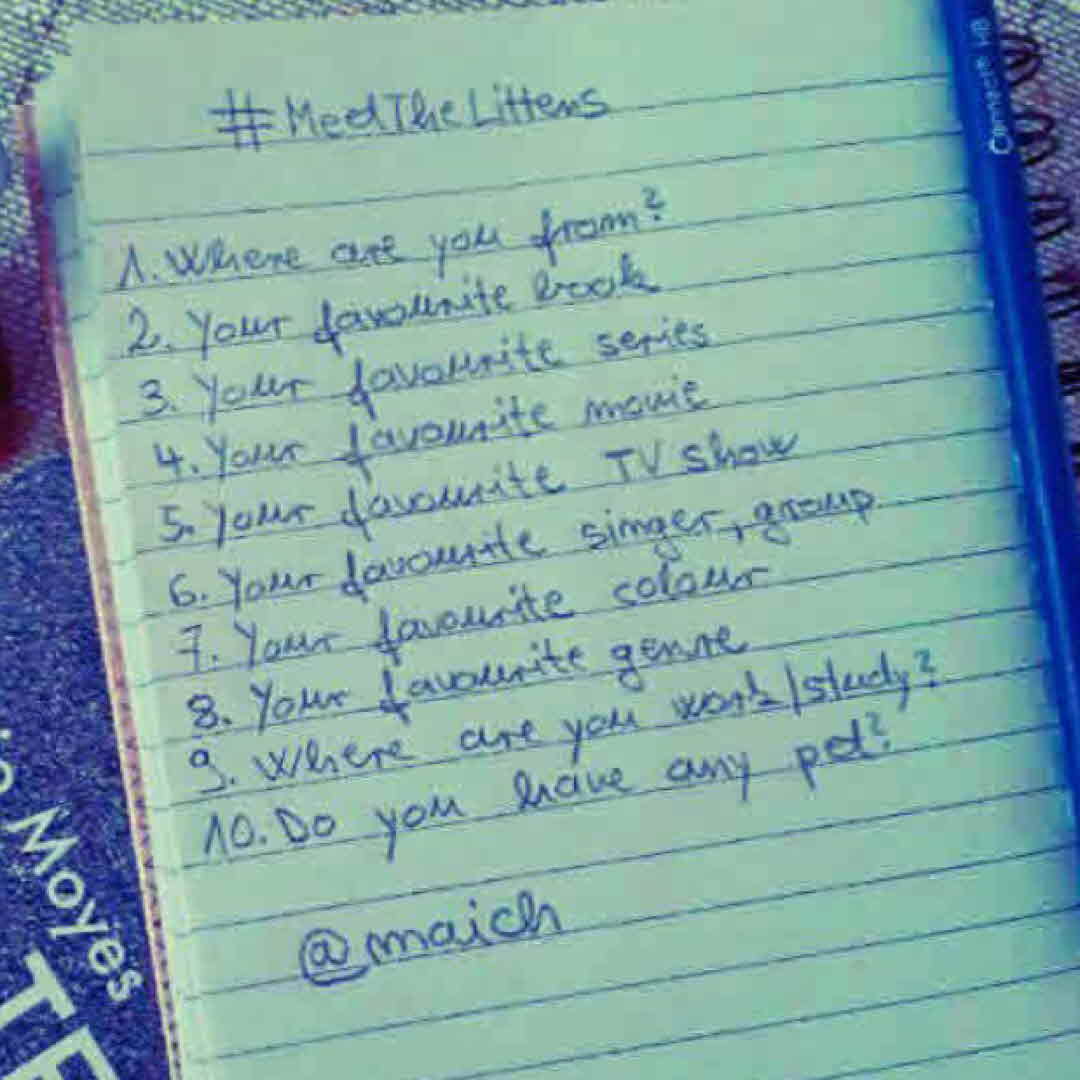 #MeetTheLittens
1. Where are you from?
2. Your favourite book
3. Your favourite series
4. Your favourite movie
5. Your favourite TV show
6. Your favourite singer, group
7. Your favourite colour
8. Your favourite genre
9. Where are you work/study?
10. Do you have any pet?
@maich
Moyes